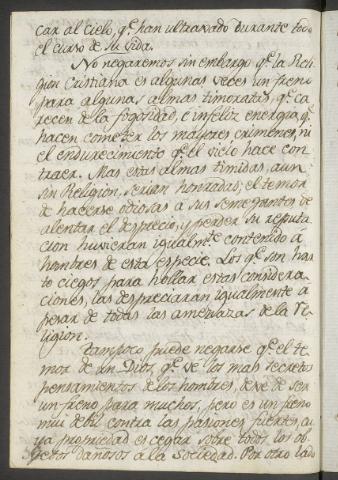 car al cielo, q.e han ultraxado durante todo
el curso de su vida.
No negaremos sin embargo q.e la Reli
gion Cristiana es algunas veces un freno
para algunas almas timoratas, q.e ca
recen de la fogosidad, è infeliz energia q.e
hacen cometer los mayores crimenes, ni
el endurecimiento q.e el vicio hace con
traer. Mas estas almas timidas, aun
sin Religion, serian honradas; el temor
de hacerse odiosas à sus semejantes de
alentar el desprecio, y perder su reputa
cion huvieran igualm.te contenido à
hombres de esta especie. Los q.e son har
to ciegos para hollar estas considera
ciones, las despreciaran igualmente à
pesar de todas las amenazas de la Re
ligion.
Tampoco puede negarse q.e el te
mor de un Dios, q.e ve los mas secretos
pensamientos de los hombres, deve de ser
un freno para muchos, pero es un freno
mui debil contra las pasiones fuertes, cu
ya propriedad es cegar sobre todos los ob
getos dañosos à la Sociedad. Por otro lado